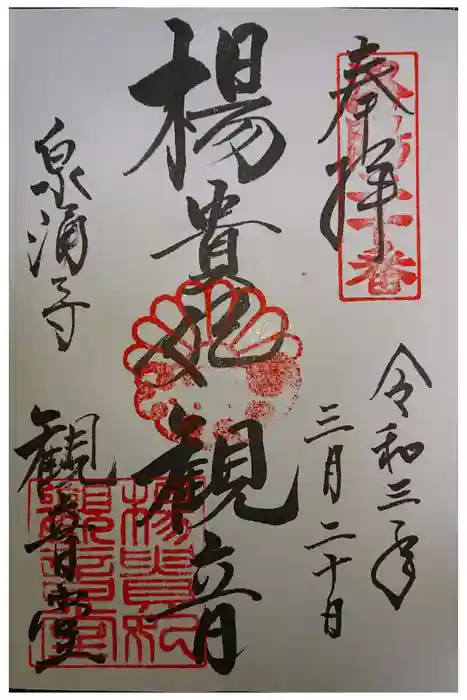 奉拝
令和三年
三月二十日
楊貴妃観音
泉涌寺
観音堂
楊貴妃
観音堂